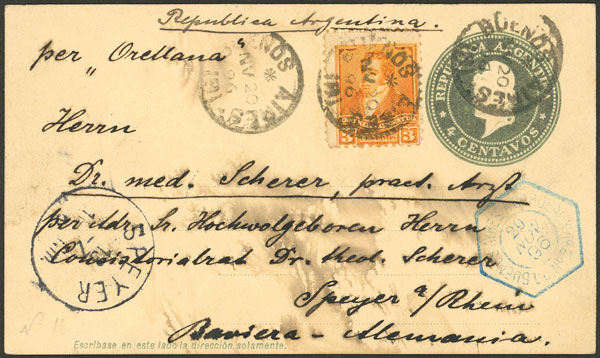 Republica Argentina.
per „Orellana"
BUENOS AIRES
NV 20
96
BUENOS AIRES
NV 20
96
3 3
REPUBLICA ARGENTINA
4 CENTAVOS
BUENOS AIRES
20
Herrn
Dr. med. Scherer, pract. Arzt
per Adr. Sr. Hochwolgeboren Herrn
Consistorialrat Dr. theol. Scherer
Speyer a/Rhein
Baviera - Alemania.
SPEYER
BUENOS
20
NOV
No 11
Escríbase en este lado la dirección solamente.